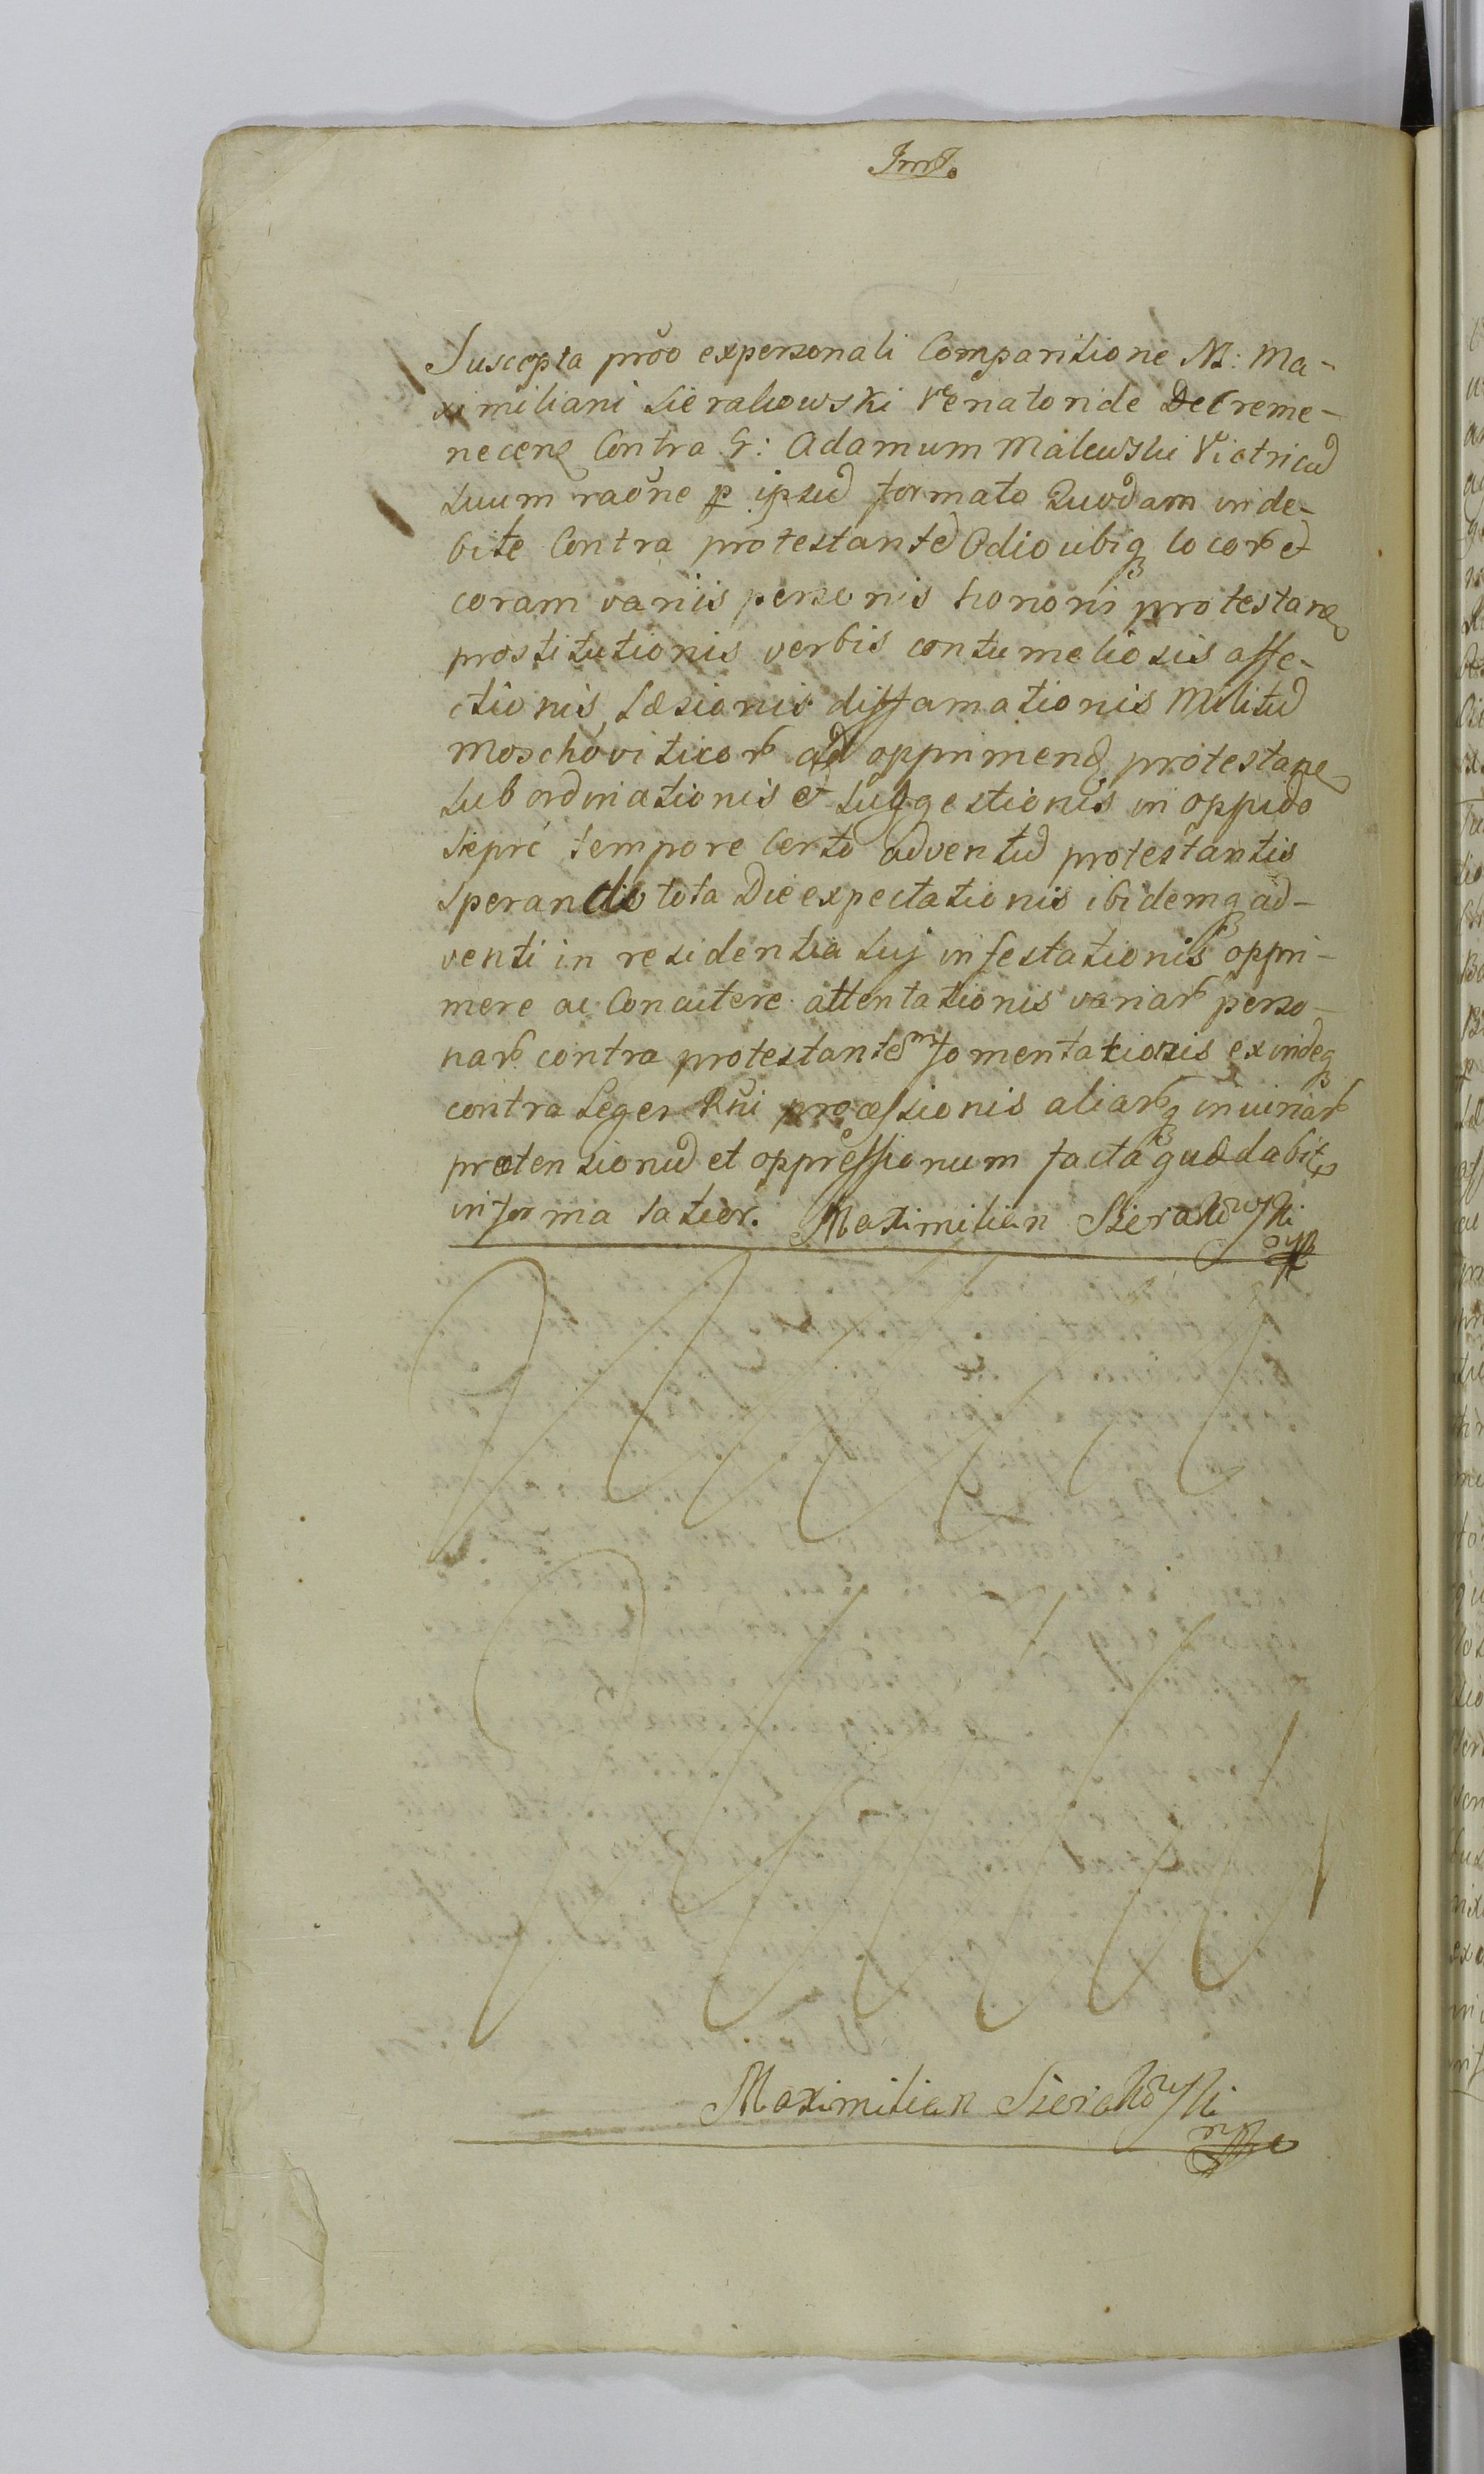 Suscepta prõo expersonali Comparitione M: Ma-
ximiliani Sierakowski Venatoride De Creme-
necen Contra G: Adamum Malewski Victricũ
suum raõne p ipsũ formato Quodam inde-
bite Contra protestantẽ Odio ubiq locorũ et
coram variis personis honoris protestan
prostitutionis verbis contumeliosis affe-
ctionis, Læsionis diffamationis Militũ
Moschoviticorũ ad opprimend protestane
subordinationis et suggestionis in oppido
tempore Certo adventũ protestantis
sperandi tota Die expectationis ibidemq ad-
venti in residentia suj infestationis oppri-
mere ac Concutere attentationis variarũ perso-
narũ contra protestantem fomentationis exindeq
contra Leges Rni processionis aliarũq iniuriarũ
prætensionũ et oppressionum facta quæ dabit
in forma latior. Maximilian Sierakowski
mp
Maximilian Sierakowski
mp